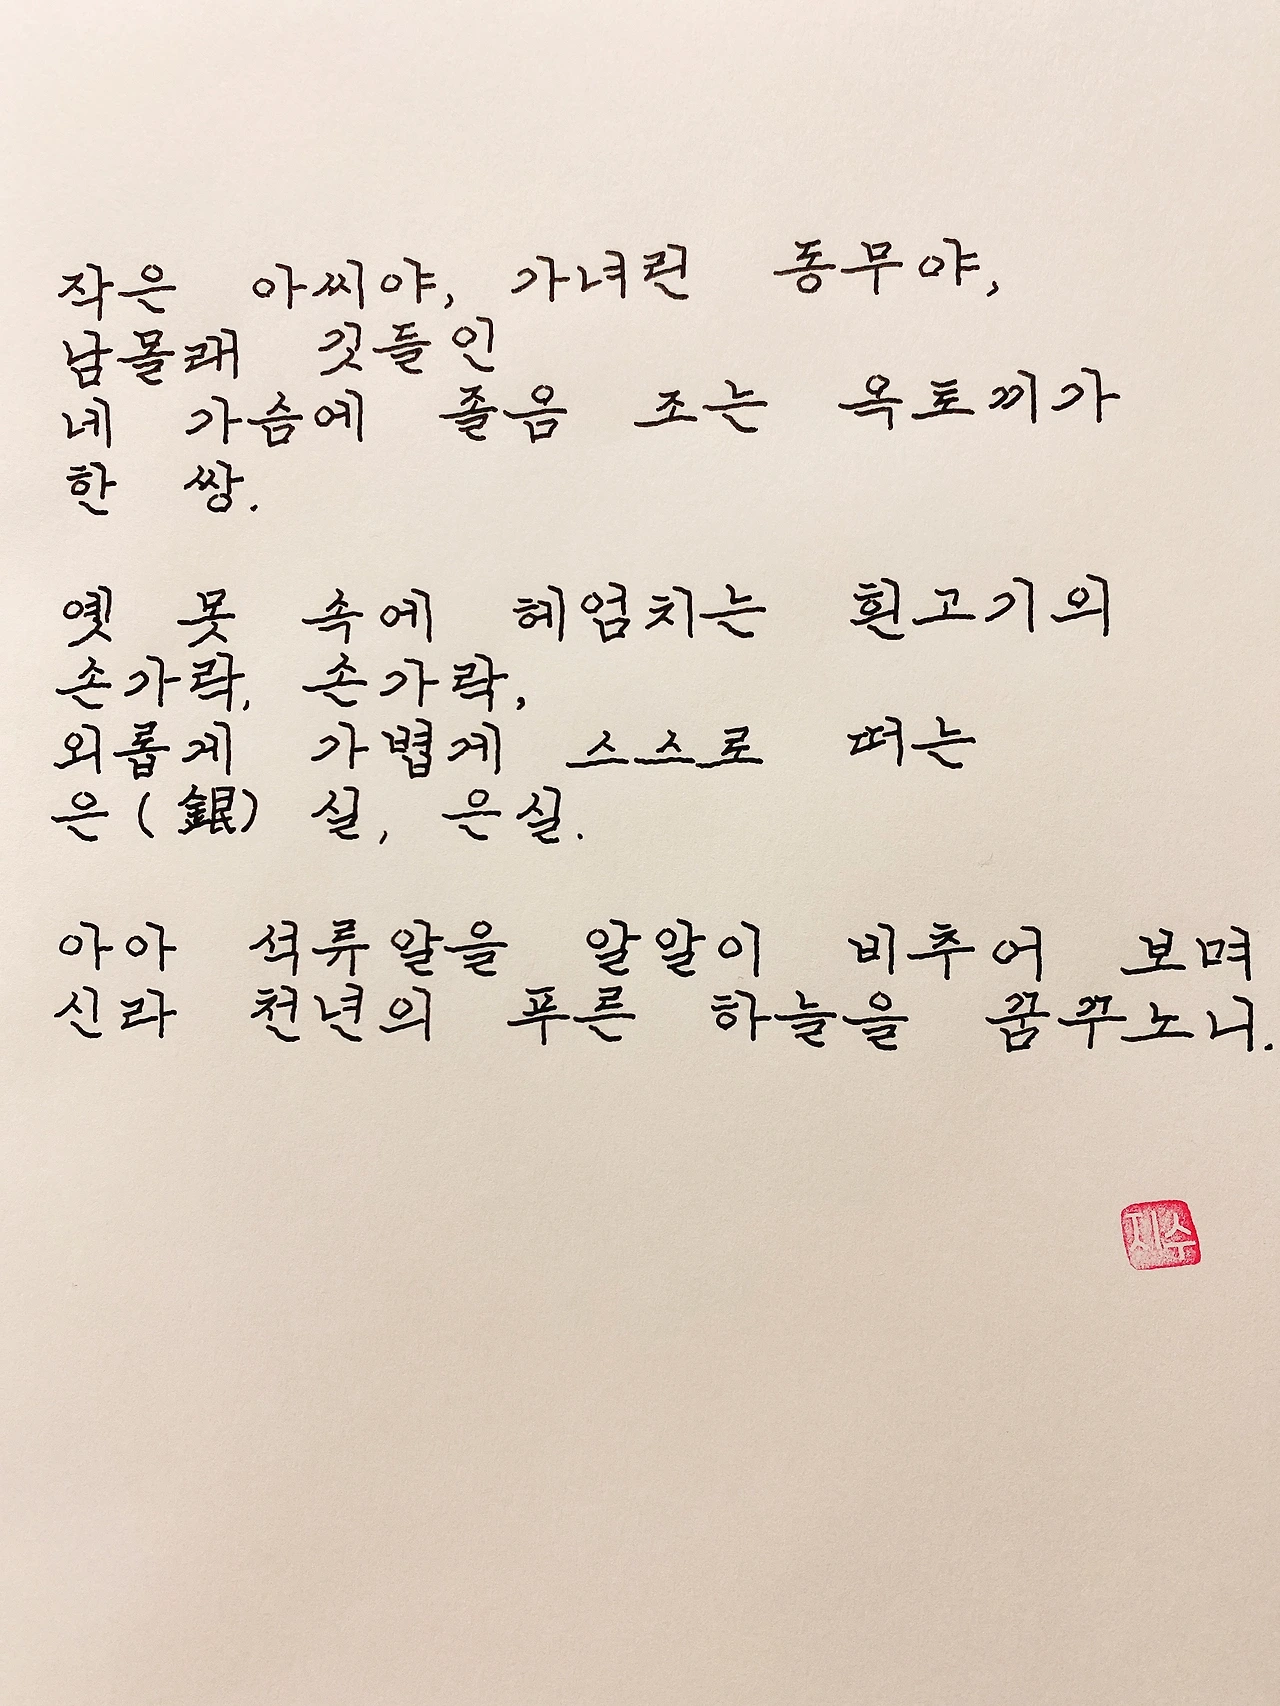 작은 아씨야, 가녀린 동무야,
남몰래 깃들인
네 가슴에 졸음 조는 옥토끼가
한 쌍.
옛 못 속에 헤엄치는 흰고기의
손가락, 손가락,
외롭게 가볍게 스스로 떠는
은(銀) 실, 은실.
아아 석류알을 알알이 비추어 보며
신라 천년의 푸른 하늘을 꿈꾸노니.
지수